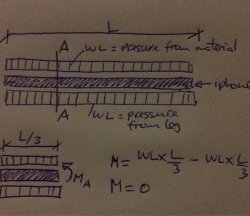 L
A
WL = pressure from material
iphone
A
WL = pressure
from leg
L/3
M_A
M = WL x L/3 - WL x L/3
M = 0